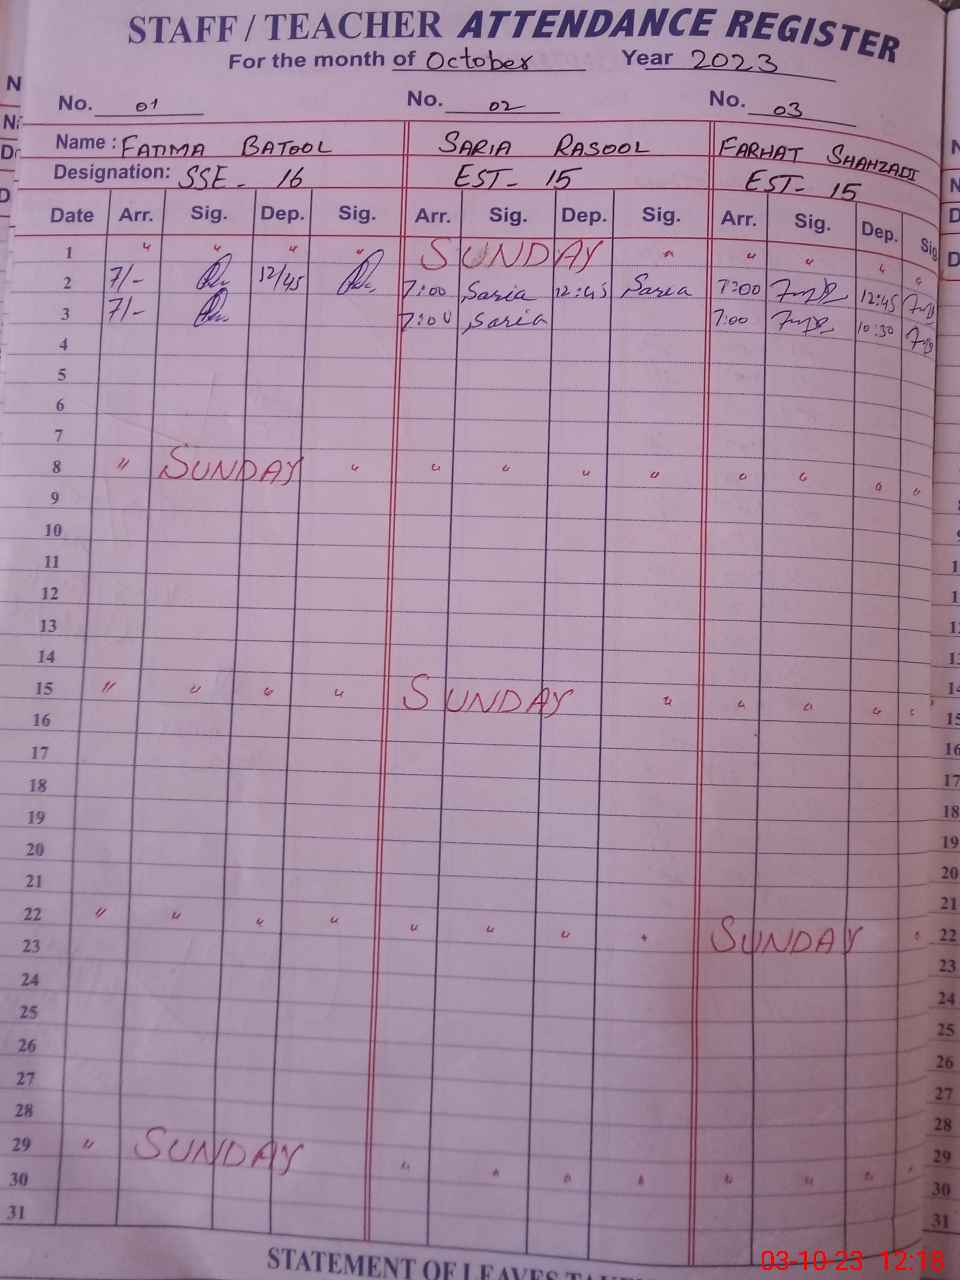 STAFF / TEACHER ATTENDANCE REGISTER
For the month of October Year 2023
No. 01 No. 02 No. 03
Name : FATIMA BATOOL SARIA RASOOL FARHAT SHAHZADI
Designation: SSE - 16 EST - 15 EST - 15
Date Arr. Sig. Dep. Sig. Arr. Sig. Dep. Sig. Arr. Sig. Dep. Sig
1 " " " " SUNDAY " " " " "
2 7/- 12/45 7:00 Saria 12:45 Saria 7:00 12:45
3 7/- 7:00 Saria 7:00 10:30
4
5
6
7
8 " SUNDAY " " " " " " " " "
9
10
11
12
13
14
15 " " " " SUNDAY " " " " "
16
17
18
19
20
21
22 " " " " " " " " SUNDAY "
23
24
25
26
27
28
29 " SUNDAY " " " " " " " "
30
31
STATEMENT OF LEAVES
03-10-23 12:18